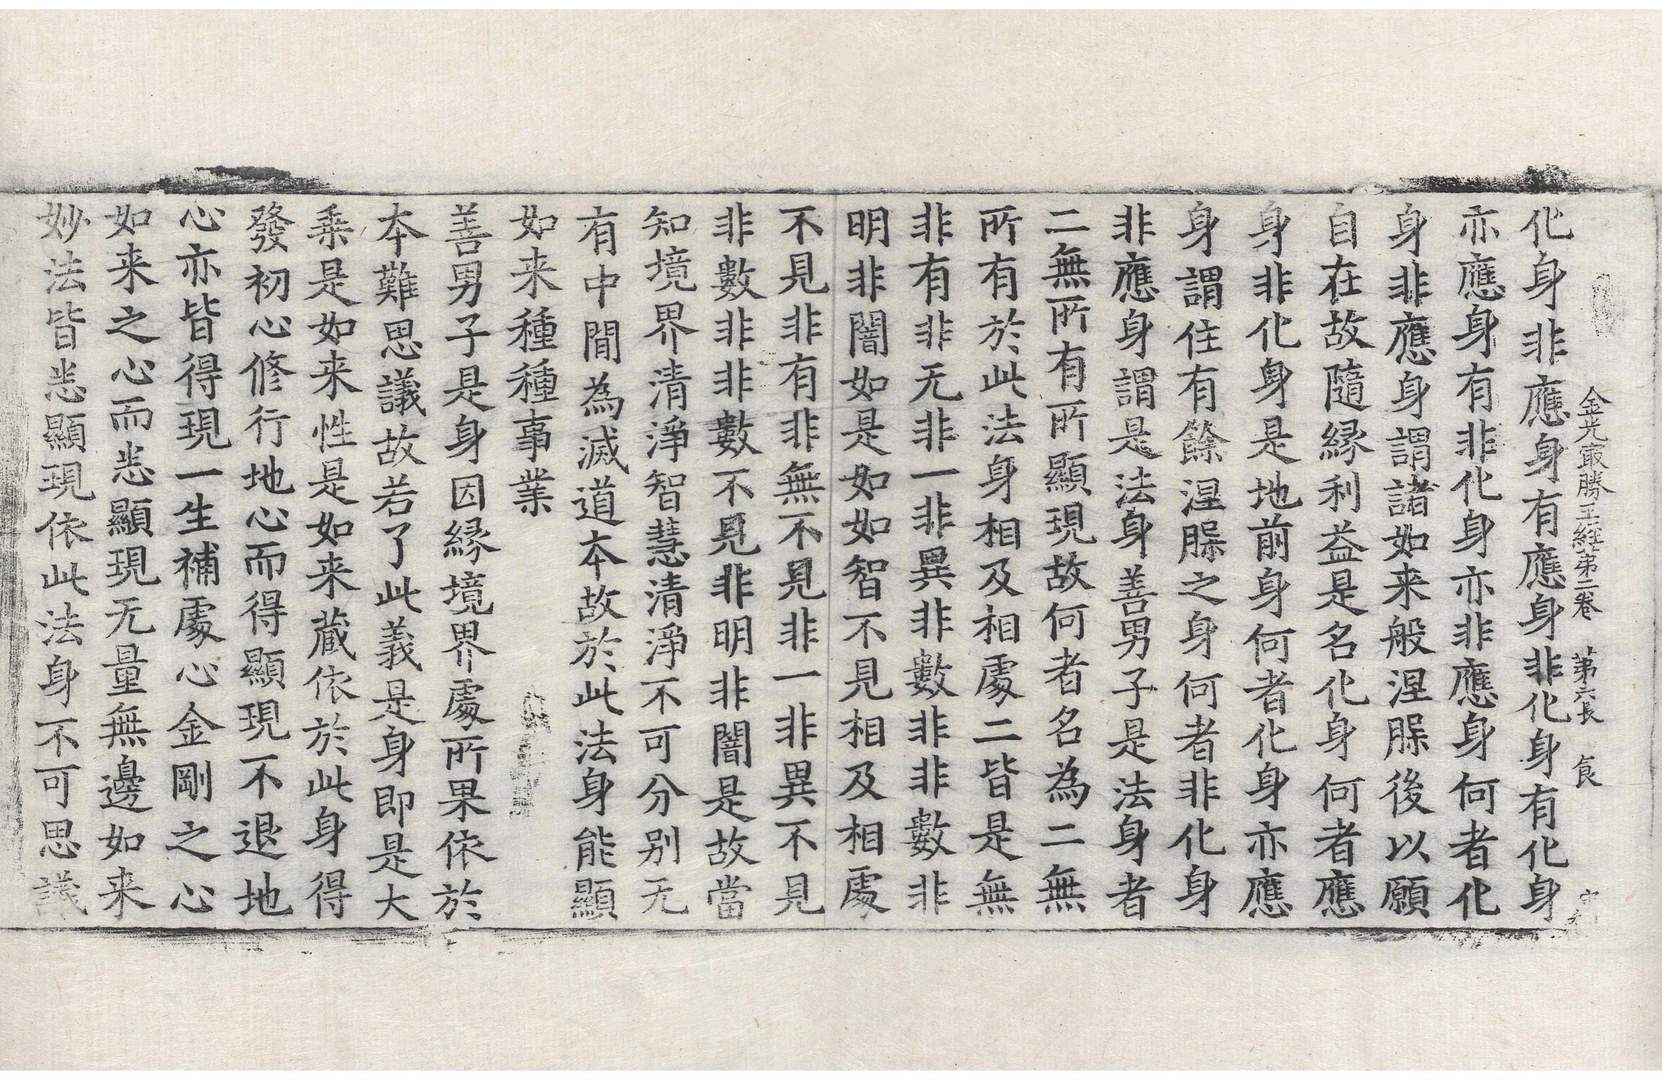 金光㝡勝王經第二卷　第六張　食
化身非應身有應身非化身有化身
亦應身有非化身亦非應身何者化
身非應身謂諸如来般涅槃後以願
自在故隨縁利益是名化身何者應
身非化身是地前身何者化身亦應
身謂住有餘涅槃之身何者非化身
非應身謂是法身善男子是法身者
二無所有所顯現故何者名為二無
所有於此法身相及相處二皆是無
非有非无非一非異非數非非數非
明非闇如是如如智不見相及相處
不見非有非無不見非一非異不見
非數非非數不見非明非闇是故當
知境界清淨智慧清淨不可分别无
有中間為滅道本故於此法身能顯
如来種種事業
善男子是身因縁境界處所果依於
本難思議故若了此義是身即是大
乘是如来性是如来藏依於此身得
發初心修行地心而得顯現不退地
心亦皆得現一生補處心金剛之心
如来之心而悉顯現无量無邊如来
妙法皆悉顯現依此法身不可思議